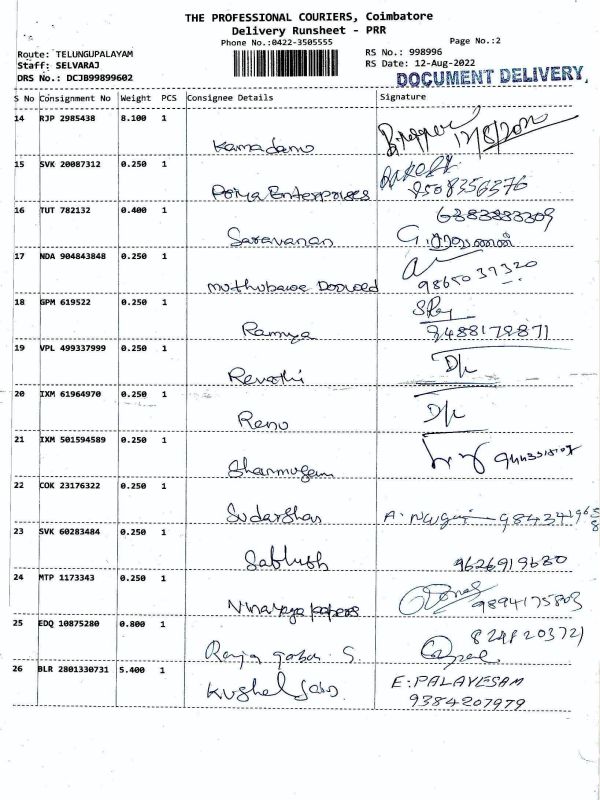 THE PROFESSIONAL COURIERS, Coimbatore
Delivery Runsheet - PRR
Phone No.:0422-3505555
Page No.:2
Route: TELUNGUPALAYAM
Staff: SELVARAJ
DRS No.: DCJB99899602
RS No.: 998996
RS Date: 12-Aug-2022
DOCUMENT DELIVERY,
S No Consignment No Weight PCS Consignee Details Signature
14 RJP 2985438 8.100 1
Kamadanu
15 SVK 20087312 0.250 1
Poiya Enterprises
9508356376
16 TUT 782132 0.400 1
6383883309
Saravanan
17 NDA 904843848 0.250 1
9865037320
18 GPM 619522 0.250 1
Ramya
8488178871
19 VPL 499337999 0.250 1
Revathi
20 IXM 61964970 0.250 1
Renu
21 IXM 501594589 0.250 1
Shanmugam
22 COK 23176322 0.250 1
Sudarshan
23 SVK 60283484 0.250 1
9626919680
24 MTP 1173343 0.250 1
Vinayaga papers
9894175803
25 EDQ 10875280 0.800 1
26 BLR 2801330731 5.400 1
E. PALAYESAM
9384207979